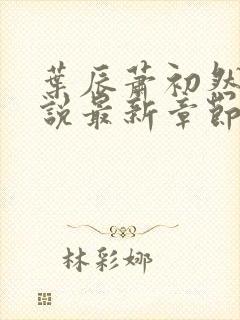 葉辰蕭初然
說最新章節
林彩娜